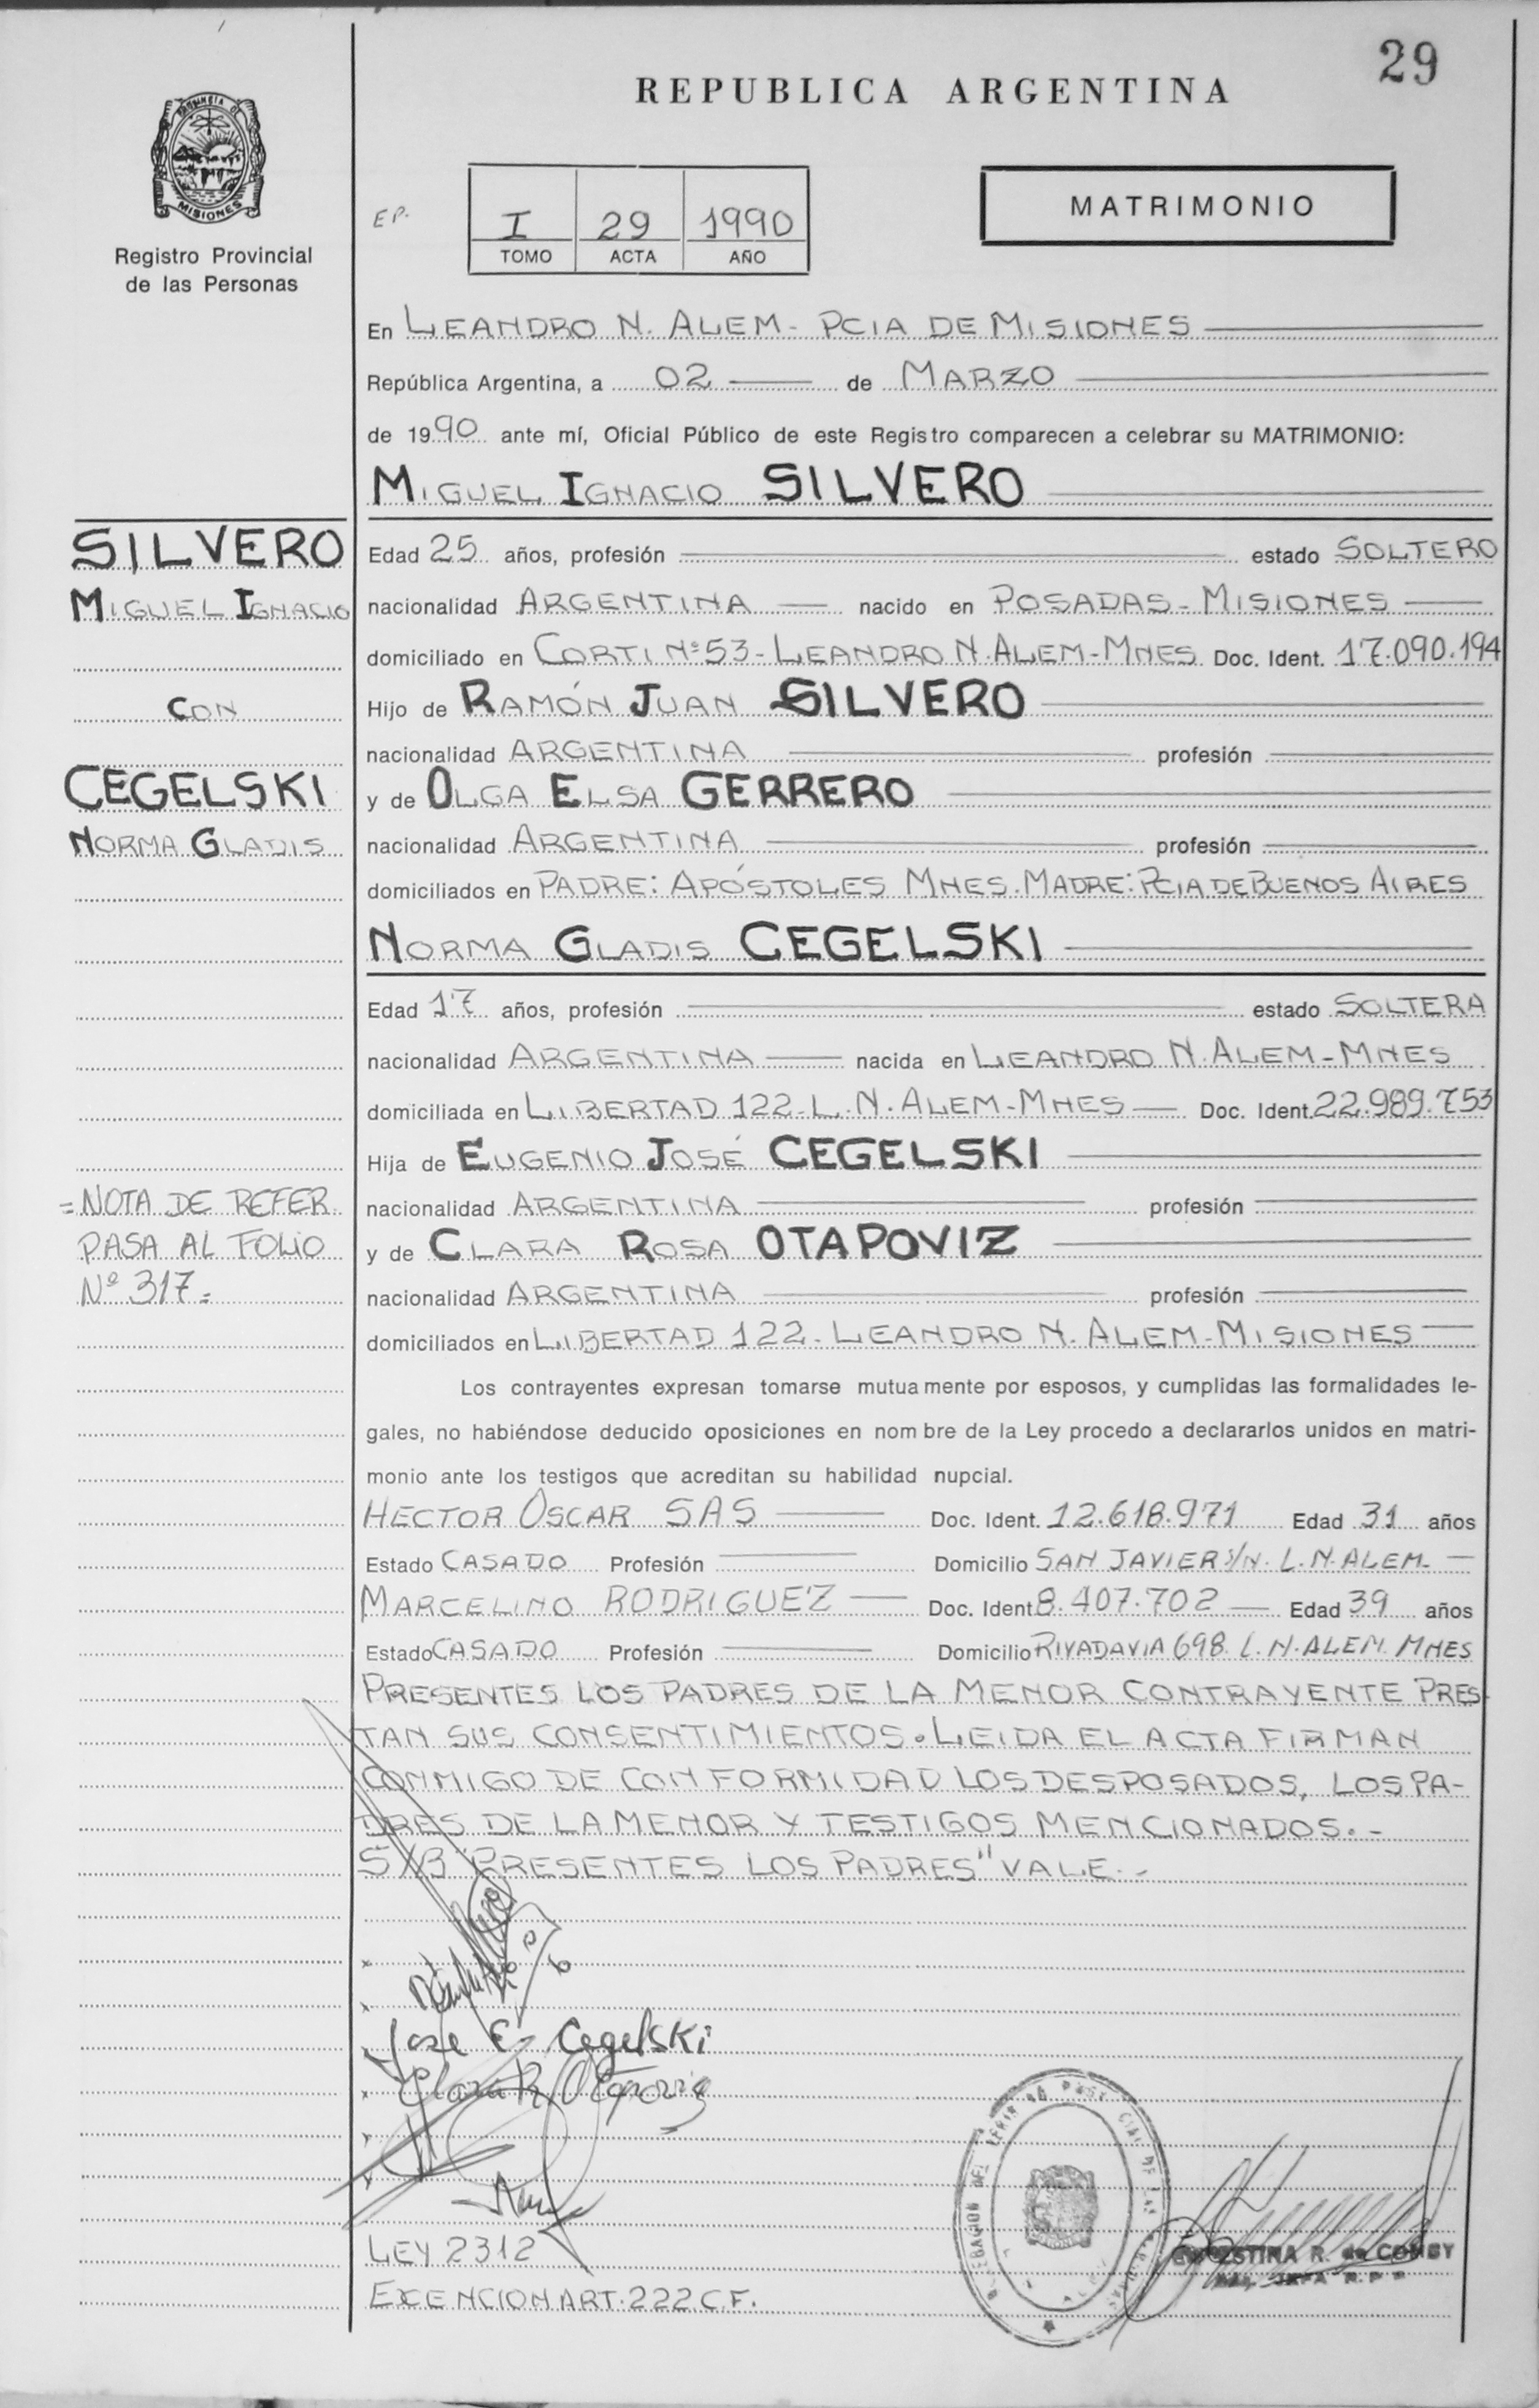 29
REPUBLICA ARGENTINA
PROVINCIA DE
MISIONES
Registro Provincial
de las Personas
EP.
I 29 1990
TOMO ACTA AÑO
MATRIMONIO
En LEANDRO N. ALEM - PCIA DE MISIONES
República Argentina, a 02 de MARZO
de 1990 ante mí, Oficial Público de este Registro comparecen a celebrar su MATRIMONIO:
MIGUEL IGNACIO SILVERO
SILVERO
MIGUEL IGNACIO
CON
CEGELSKI
NORMA GLADIS
Edad 25 años, profesión estado SOLTERO
nacionalidad ARGENTINA nacido en POSADAS - MISIONES
domiciliado en CORTI Nº 53 - LEANDRO N. ALEM - MNES Doc. Ident. 17.090.194
Hijo de RAMÓN JUAN SILVERO
nacionalidad ARGENTINA profesión
y de OLGA ELSA GERRERO
nacionalidad ARGENTINA profesión
domiciliados en PADRE: APÓSTOLES MNES. MADRE: PCIA DE BUENOS AIRES
NORMA GLADIS CEGELSKI
Edad 17 años, profesión estado SOLTERA
nacionalidad ARGENTINA nacida en LEANDRO N. ALEM - MNES
domiciliada en LIBERTAD 122 - L. N. ALEM - MNES Doc. Ident. 22.989.753
Hija de EUGENIO JOSÉ CEGELSKI
nacionalidad ARGENTINA profesión
y de CLARA ROSA OTAPOVIZ
nacionalidad ARGENTINA profesión
domiciliados en LIBERTAD 122 - LEANDRO N. ALEM - MISIONES
= NOTA DE REFER.
PASA AL FOLIO
Nº 317 =
Los contrayentes expresan tomarse mutuamente por esposos, y cumplidas las formalidades le-
gales, no habiéndose deducido oposiciones en nombre de la Ley procedo a declararlos unidos en matri-
monio ante los testigos que acreditan su habilidad nupcial.
HECTOR OSCAR SAS Doc. Ident. 12.618.971 Edad 31 años
Estado CASADO Profesión Domicilio SAN JAVIER S/N. L. N. ALEM.
MARCELINO RODRIGUEZ Doc. Ident. 8.407.702 Edad 39 años
Estado CASADO Profesión Domicilio RIVADAVIA 698. L. N. ALEM. MNES
PRESENTES LOS PADRES DE LA MENOR CONTRAYENTE PRES-
TAN SUS CONSENTIMIENTOS. LEIDA EL ACTA FIRMAN
CONMIGO DE CONFORMIDAD LOS DESPOSADOS, LOS PA-
DRES DE LA MENOR Y TESTIGOS MENCIONADOS.-
S/B "PRESENTES LOS PADRES" VALE.-
Jose E. Cegelski
Clara R. Otapoviz
LEY 2312
EXENCION ART. 222 C.F.
R. de COMBY
JEFA R.P.P.